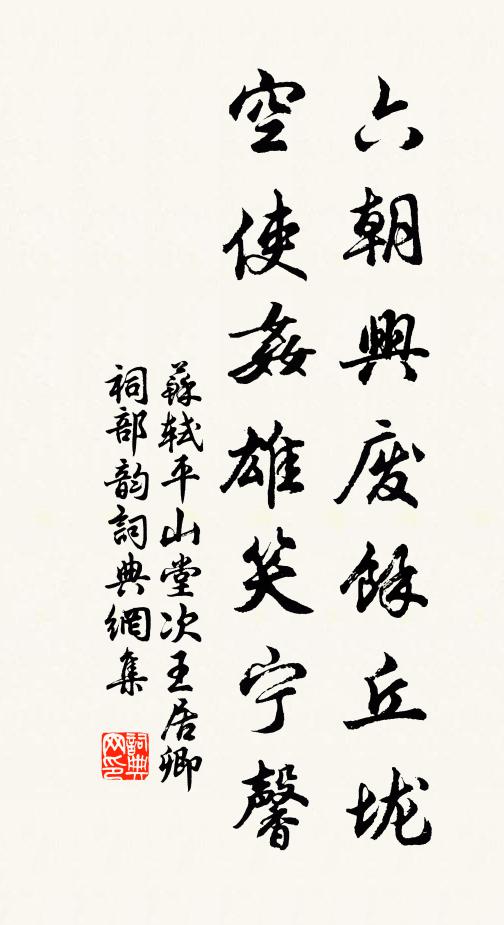 六朝興廢餘丘垅
空使姦雄笑宁馨
蘇轼平山堂次王居卿
祠部韵詞典網集
詞典网印